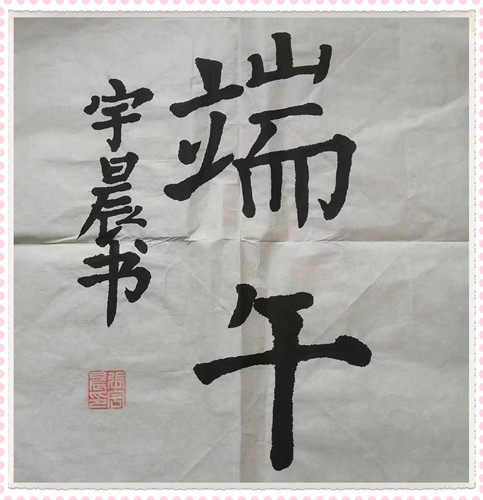 端午
宇晨书